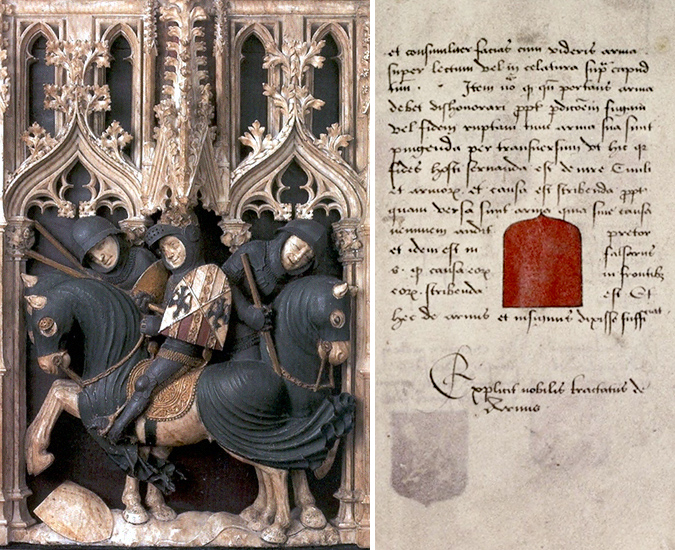 et consimiliter facias cum videris arma
super lectum vel in celatura sup̄ capud
tuu᷑. Item no̅ q̨ qn̄ portans arma
debet dishonorari propt̄ p̱dicōem fugam
vel fidem ruptam tunc arma sua sunt
pingenda per transversum ut hic q̨
fides hosti servanda est de iure Civili
et armoꝝ et causa est scribenda propt̄
quam versa sunt arma quia sine causa
neminem audit pretor
et idem est in falsariis
s. q̨ causa eoꝝ in frontibꝫ
eoꝝ scribenda est Et
hec de armis et insigniis dixisse suffi ciat
Explicit nobilis tractatus de
Armis